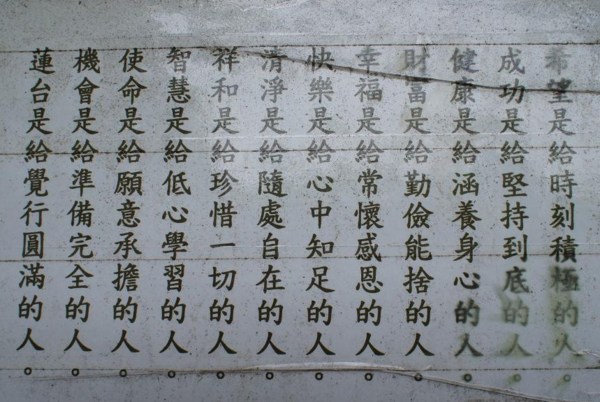 希望是給時刻積極的人。
成功是給堅持到底的人。
健康是給涵養身心的人。
財富是給勤儉能捨的人。
幸福是給常懷感恩的人。
快樂是給心中知足的人。
清淨是給隨處自在的人。
祥和是給珍惜一切的人。
智慧是給低心學習的人。
使命是給願意承擔的人。
機會是給準備完全的人。
蓮台是給覺行圓滿的人。